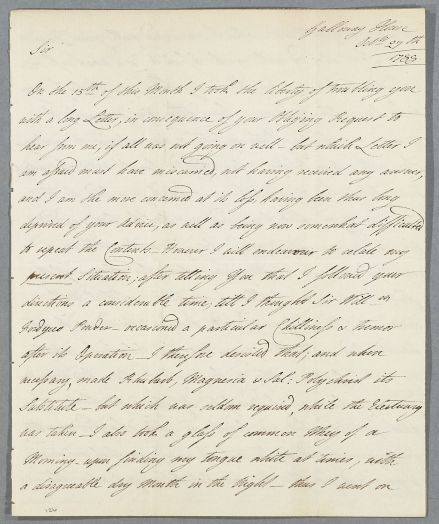 Galloway House
Octr. 27th
1788
Sir
On the 15th of this Month I took the liberty of troubling you
with a long Letter, in consequence of your Obliging Request to
hear from me, if all was not going on well – but which Letter I
am afraid must have miscarried, not having received any answer,
and I am the more concerned at its loss having been thus long
deprived of your Advice, as well as being now somewhat difficulted
to repeat the Contents. However I will endeavour to relate my
present Situation; after telling you that I followed your
directions a considerable time; till I thought Sir Will
Powder – occasioned a particular Chilliness & tremor
after its Operation – I therefore desisted that; and when
necessary, made Rhubarb, Magnesia & Sal: Polychrist its
Substitute – but which was seldom required, while the Electuary
was taken – I also took a glass of common Whey of a
Morning – upon finding my tongue white at times, with
a disagreeable dry Mouth in the Night – thus I went on